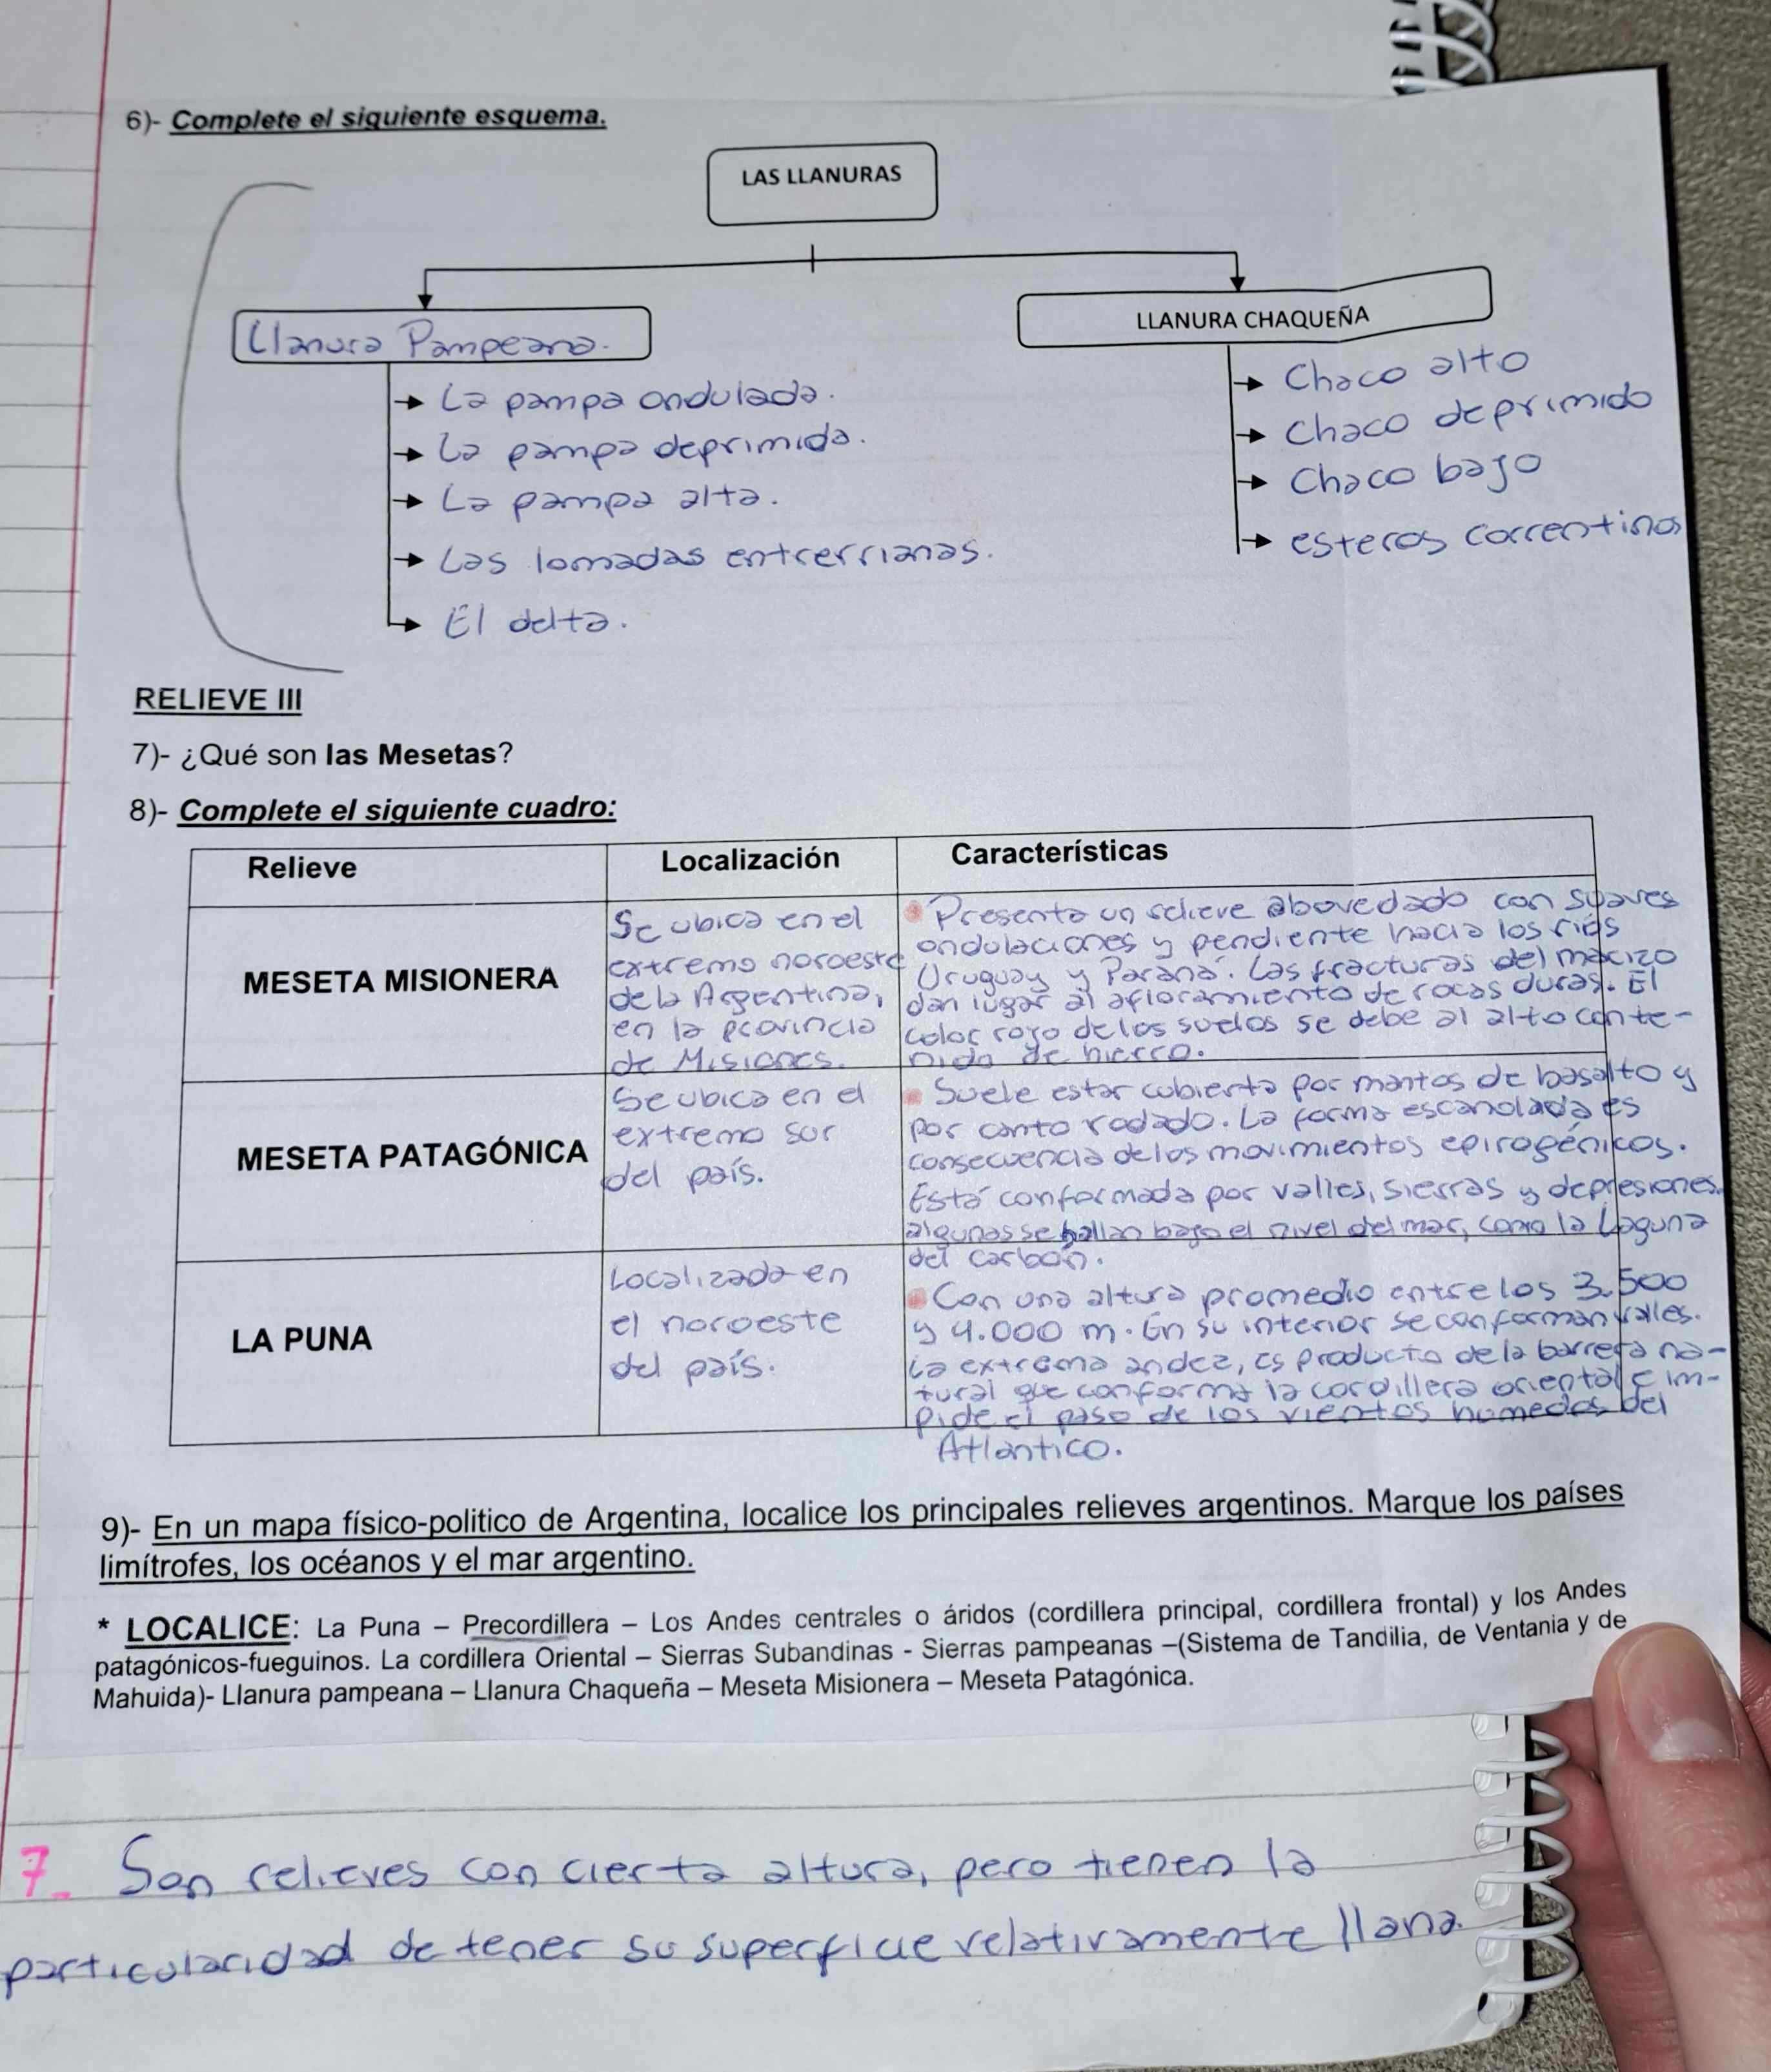 6)- Complete el siguiente esquema.
LAS LLANURAS
Llanura Pampeana.
→ La pampa ondulada.
→ La pampa deprimida.
→ La pampa alta.
→ Las lomadas entrerrianas.
→ El delta.
LLANURA CHAQUEÑA
→ Chaco alto
→ Chaco deprimido
→ Chaco bajo
→ esteros correntinos
RELIEVE III
7)- ¿Qué son las Mesetas?
8)- Complete el siguiente cuadro:
Relieve
Localización
Características
MESETA MISIONERA
Se ubica en el
extremo noroeste
de la Argentina,
en la provincia
de Misiones.
• Presenta un relieve abovedado con suaves
ondulaciones y pendiente hacia los ríos
Uruguay y Paraná. Las fracturas del macizo
dan lugar al afloramiento de rocas duras. El
color rojo de los suelos se debe al alto conte-
nido de hierro.
MESETA PATAGÓNICA
Se ubica en el
extremo sur
del país.
• Suele estar cubierta por mantos de basalto y
por canto rodado. La forma escanolada es
consecuencia de los movimientos epirogénicos.
Está conformada por valles, sierras y depresiones.
algunas se hallan bajo el nivel del mar, como la Laguna
del Carbón.
LA PUNA
Localizada en
el noroeste
del país.
• Con una altura promedio entre los 3.500
y 4.000 m. En su interior se conforman valles.
La extrema andez, es producto de la barrera na-
tural que conforma la cordillera oriental e im-
pide el paso de los vientos humedos del
Atlántico.
9)- En un mapa físico-politico de Argentina, localice los principales relieves argentinos. Marque los países
limítrofes, los océanos y el mar argentino.
* LOCALICE: La Puna – Precordillera – Los Andes centrales o áridos (cordillera principal, cordillera frontal) y los Andes
patagónicos-fueguinos. La cordillera Oriental – Sierras Subandinas - Sierras pampeanas –(Sistema de Tandilia, de Ventania y de
Mahuida)- Llanura pampeana – Llanura Chaqueña – Meseta Misionera – Meseta Patagónica.
7. Son relieves con cierta altura, pero tienen la
particularidad de tener su superficie relativamente llana.